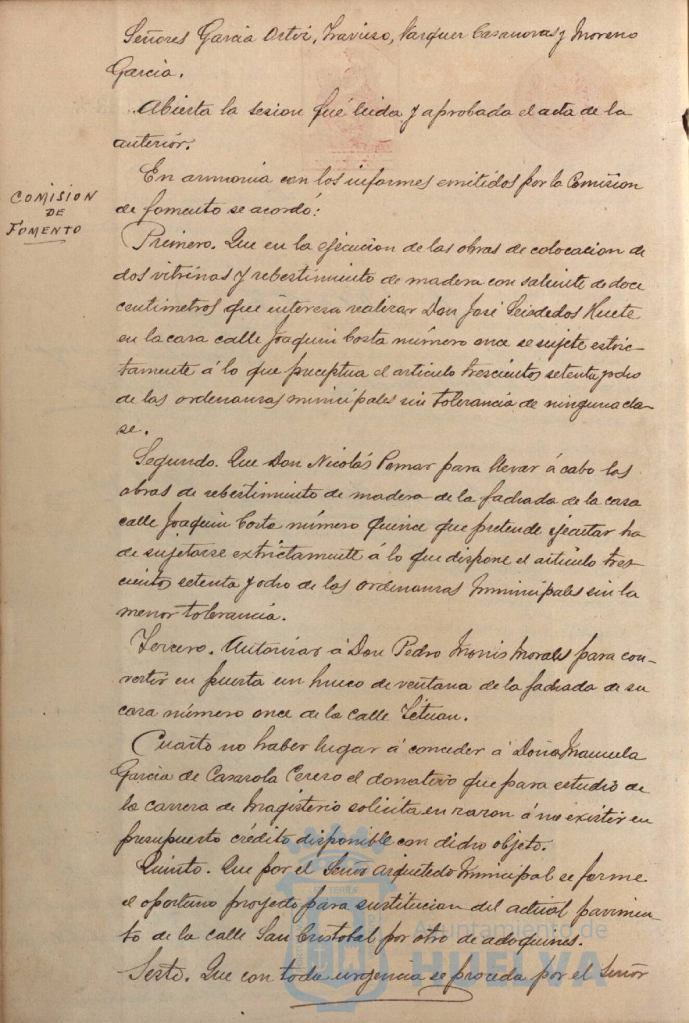 Señores Garcia Ortiz, Travieso, Vazquez Casanovas y Moreno
Garcia.
Abierta la sesion fué leida y aprobada el acta de la
anterior.
COMISION
DE
FOMENTO
En armonia con los informes emitidos por la Comision
de fomento se acordó:
Primero. Que en la ejecucion de las obras de colocacion de
dos vitrinas y rebestimiento de madera con saliente de doce
centimetros que interesa realizar Don José Seisdedos Huete
en la casa calle Joaquin Costa número once se sujete estric-
tamente á lo que preceptua el articulo trescientos setenta y odio
de las ordenanzas municipales sin tolerancia de ninguna cla-
se.
Segundo. Que Don Nicolás Pomar para llevar á cabo las
obras de rebestimiento de madera de la fachada de la casa
calle Joaquin Costa número quince que pretende ejecutar ha
de sujetarse extrictamente á lo que dispone el articulo tres-
cientos setenta y odio de las ordenanzas municipales sin la
menor tolerancia.
Tercero. Autorizar á Don Pedro Morales para con-
vertir en puerta un hueco de ventana de la fachada de su
casa número once de la calle Tetuan.
Cuarto no haber lugar á conceder á Doña Manuela
Garcia de Casasola Cerezo el donativo que para estudio de
la carrera de Magisterio solicita en razon á no existir en
presupuesto crédito disponible con dicho objeto.
Quinto. Que por el Señor Arquitecto Municipal se forme
el oportuno proyecto para sustitucion del actual pavimen-
to de la calle San Cristobal por otro de adoquines.
Sexto. Que con toda urgencia se proceda por el Señor
Ayuntamiento de
HUELVA